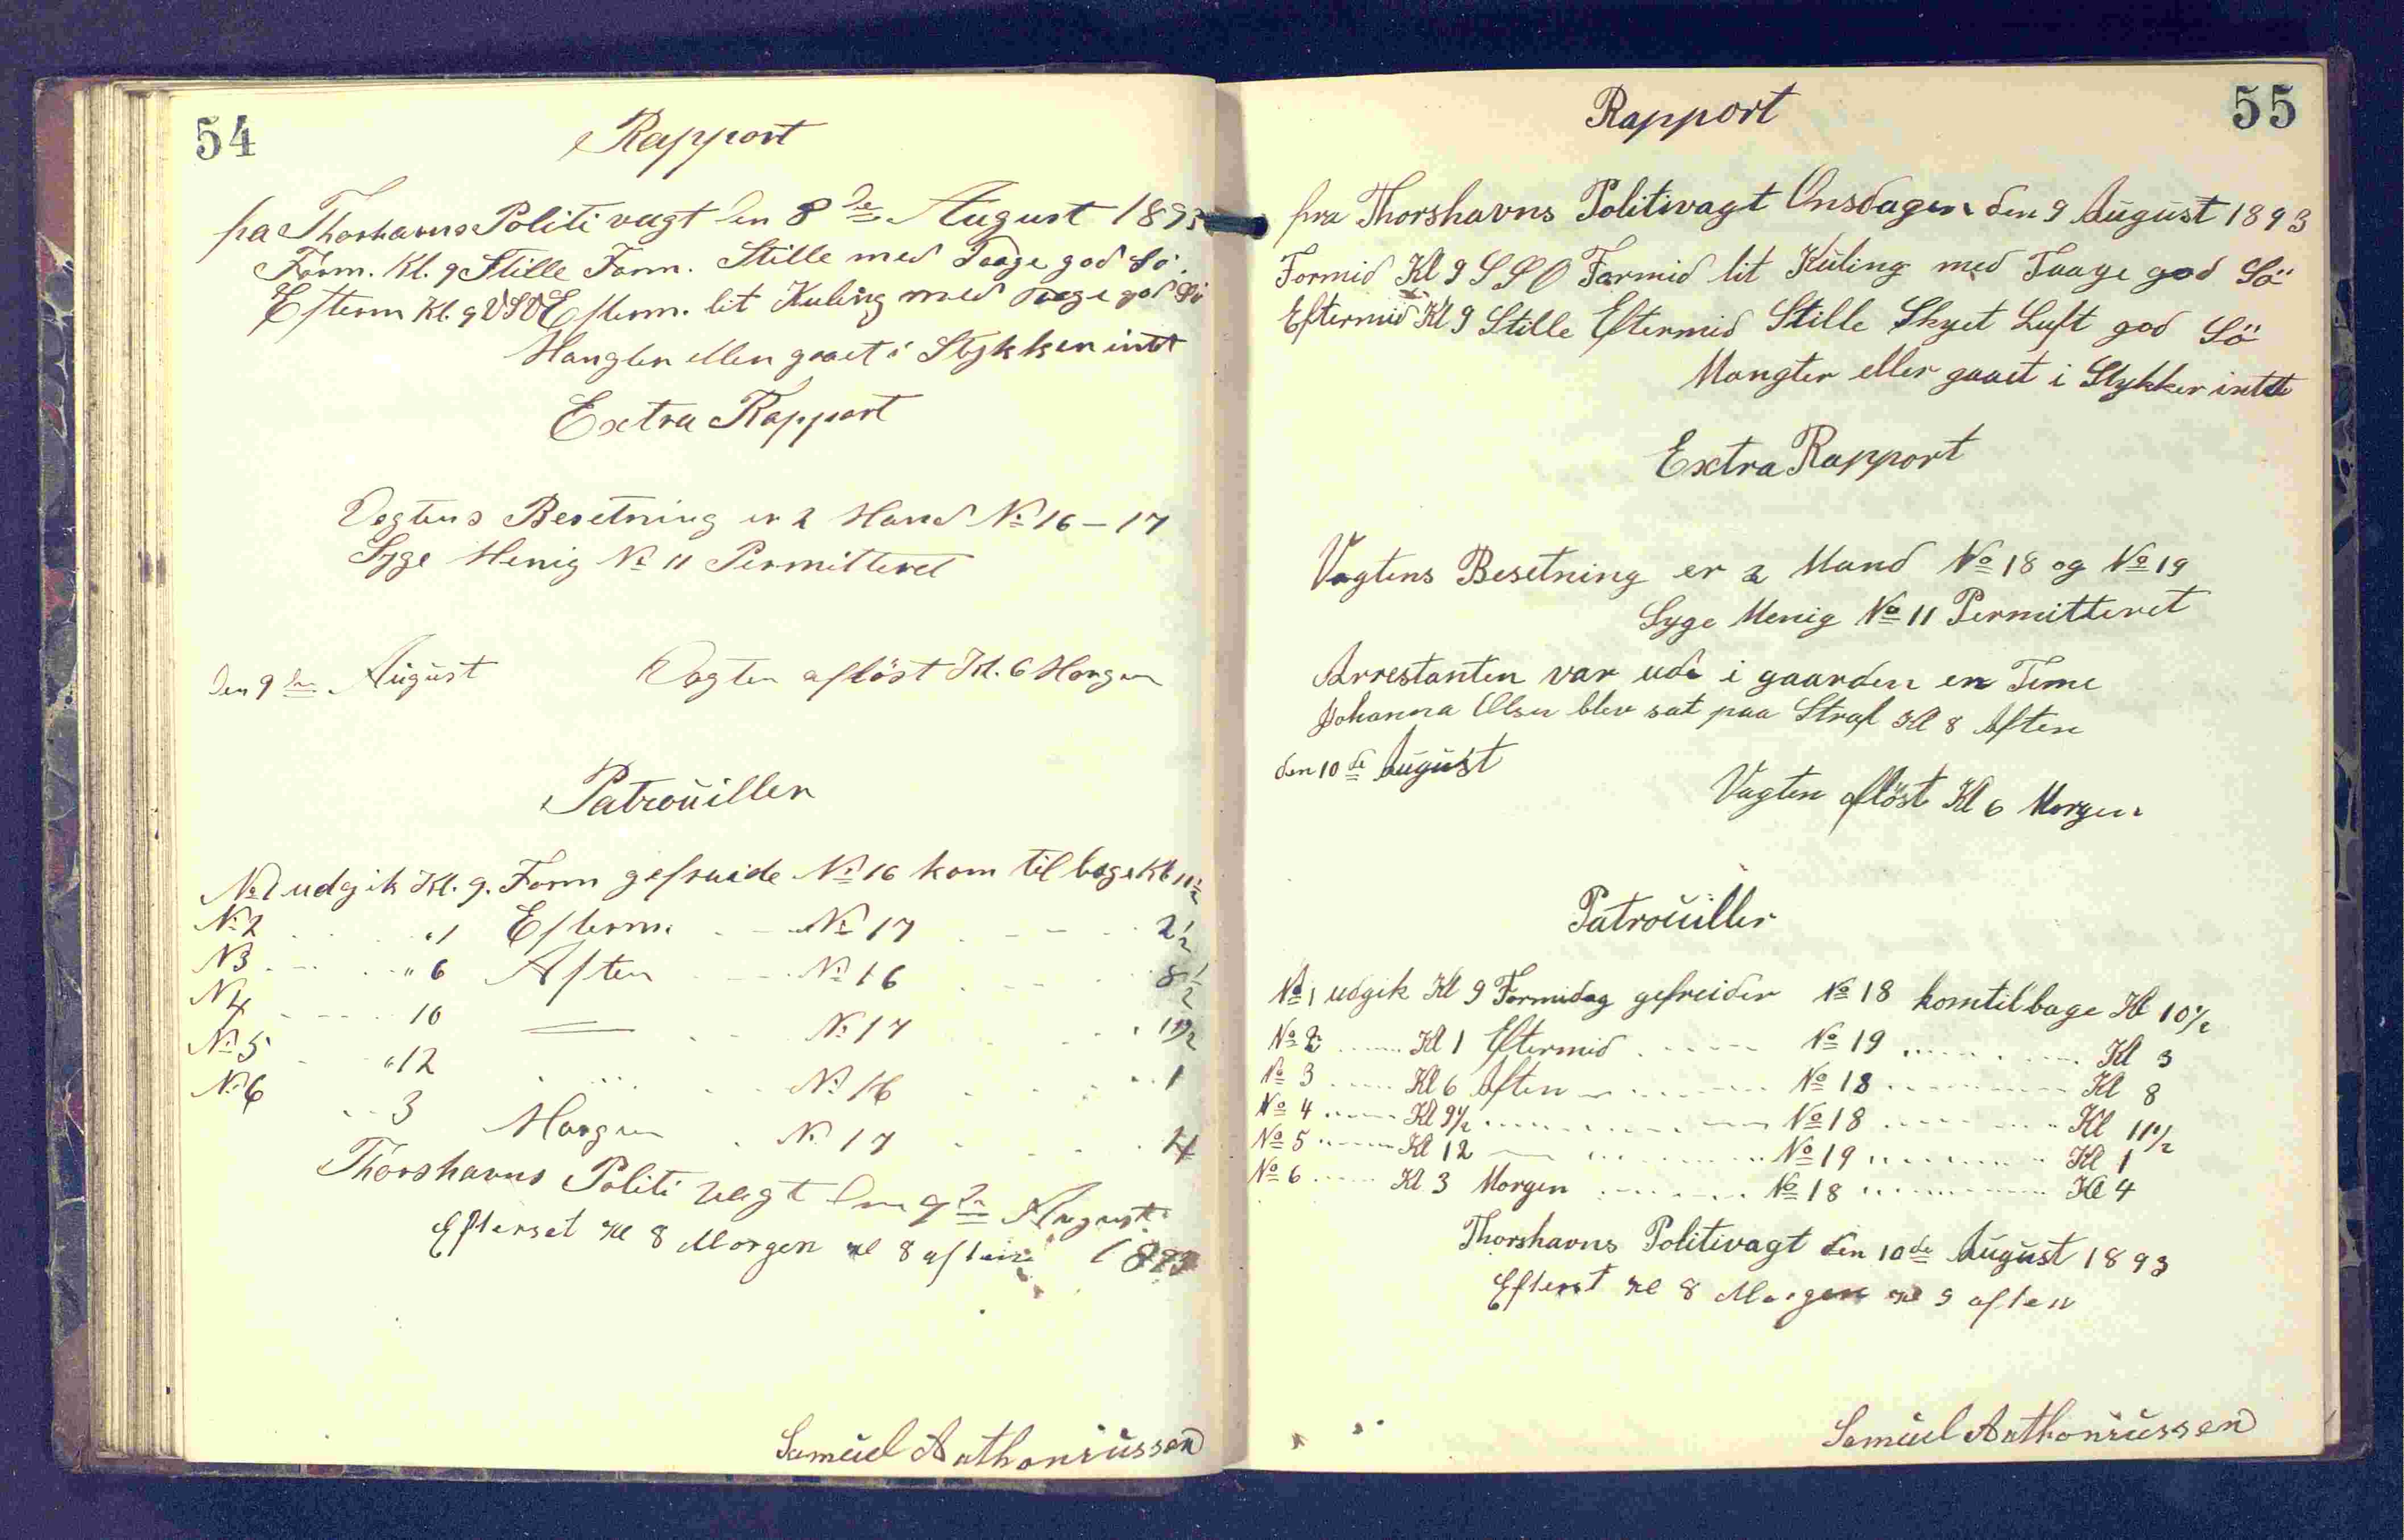 54
Rapport
fra Thorshavns Politivagt den 8de August 1893
Form. Kl. 9 Stille Form. Stille med Taage god Sö.
Efterm Kl. 9 VSV Efterm. lit Kuling med Taage god Sö
Mangler eller gaaet i Stykker intet
Extra Rapport
Vagtens Besetning er 2 Mand No 16 – 17
Syge Menig No 11 Permitteret
den 9de August Vagten aflöst Kl. 6 Morgen
Patrouiller
No 1 udgik Kl. 9. Form gefreide No 16 kom tilbage Kl 11 1/2
No 2 " 1 Efterm. No 17 2 1/2
N 3 " 6 Aften No 16 8 1/2
N 4 10 No 17 11 1/2
No 5 " 12 No 16 1
No 6 3 Morgen No 17 4
Thorshavns Politivagt den 9de August
1893
Efterset Kl 8 Morgen Kl 8 aften
Samüel Anthoniüssen
55
Rapport
fra Thorshavns Politivagt Onsdagen den 9 August 1893
Formid Kl 9 SSO Formid lit Küling med Taage god Sö
Eftermid Kl 9 Stille Eftermid Stille Skyet Luft god Sö
Mangter eller gaaet i Stykker intet
Extra Rapport
Vagtens Besetning er 2 Mand No 18 og No 19
Syge Menig No 11 Permitteret
Arrestanten var ude i gaarden en Time
Johanna Olsen blev sat paa Straf Kl 8 Aften
den 10de August
Vagten aflöst Kl 6 Morgen
Patrouiller
No 1 udgik Kl 9 Formidag gefreider No 18 kom tilbage Kl 10 1/2
No 2 Kl 1 Eftermid No 19 Kl 3
No 3 Kl 6 Aften No 18 Kl 8
No 4 Kl 9 1/2 No 18 Kl 11 1/2
No 5 Kl 12 No 19 Kl 1
No 6 Kl 3 Morgen No 18 Kl 4
Thorshavns Politivagt den 10de August 1893
Efterset Kl 8 Morgen Kl 9 aften
Samüel Anthoniüssen